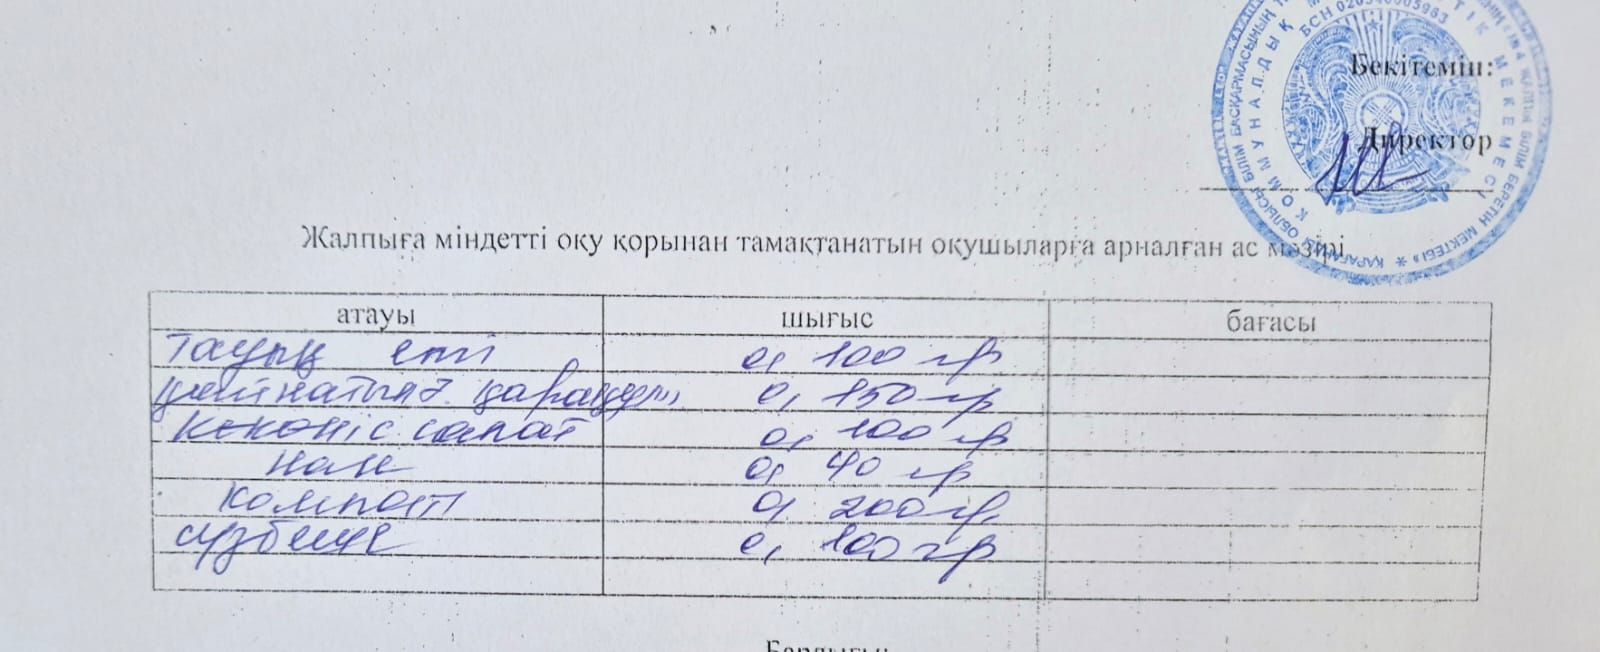 БСН 020540005963
КОММУНАЛДЫҚ МЕМЛЕКЕТТІК МЕКЕМЕСІ
Бекітемін:
Директор
Жалпыға міндетті оқу қорынан тамақтанатын оқушыларға арналған ас мәзірі
атауы шығыс бағасы
Тауық еті 0, 100 гр
қайнатылғ. қарақұм. 0, 150 гр
Көкөніс салат 0, 100 гр
нан 0, 40 гр
компот 0, 200 гр
сүзбеше 0, 100 гр